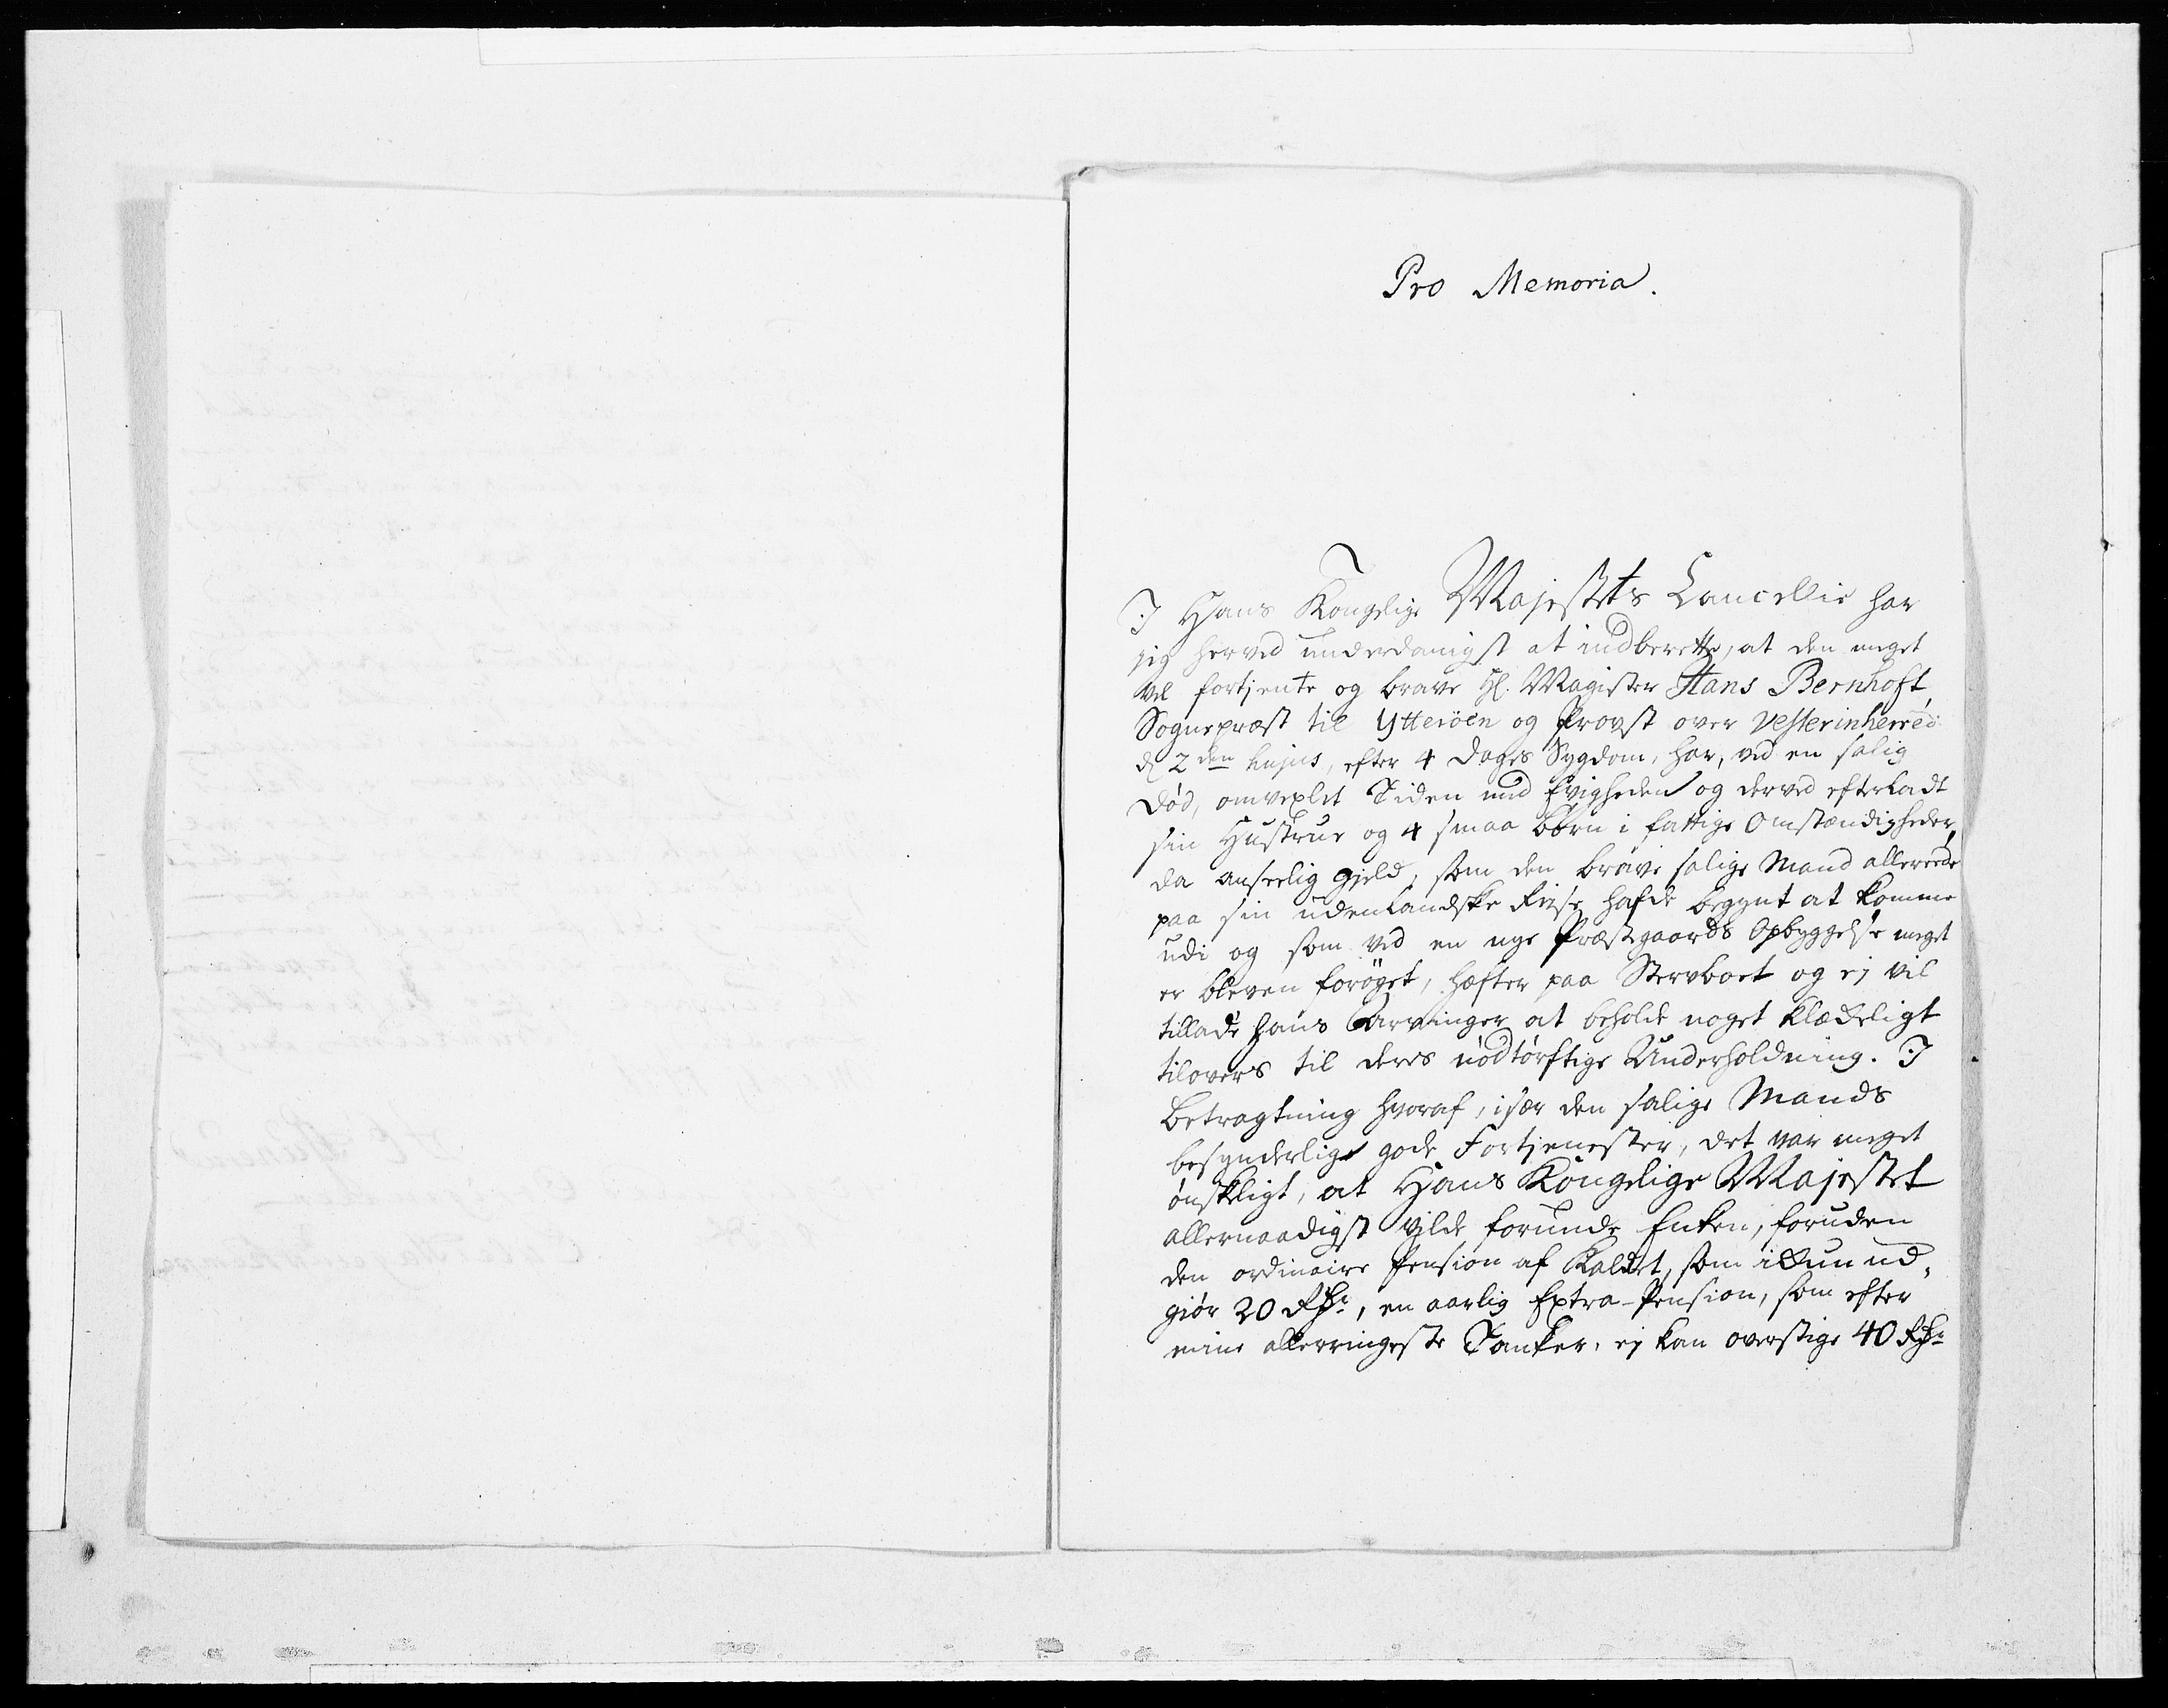 Pro Memoria.
I Hans Kongelige Majestets Cancellie har
jeg herved underdanigst at indberette, at den meget
vel fortjente og brave Hr. Magister Hans Bernhoft,
Sognepræst til Ytterøen og Provst over Vesterinherred
d. 2den hujus, efter 4 Dages Sygdom, har, ved en salig
Død, omvexlet Tiden med Evigheden og derved efterladt
sin Hustrue og 4 smaa börn i fattige Omstændigheder,
da anseelig Gjeld, som den brave salige Mand allereede
paa sin udenlandske Reise hafde begynt at komme
udi og som ved en nye Præstegaards Opbyggelse meget
er bleven forøget, hæfter paa Stervboet og ej vil
tillade hans Arvinger at beholde noget klækkeligt
tilovers til deres nödtörftige Underholdning. I
Betragtning hvoraf, især den salige Mands
besynderlige gode Fortjenester, det var meget
ønskeligt, at Hans Kongelige Majestet
allernaadigst vilde forunde Enken, foruden
den ordinaire Pension af Kaldet, som ikkun ud-
giör 20 Rdr, en aarlig Extra-Pension, som efter
mine allerringeste Tanker, ej kan overstige 40 Rdr